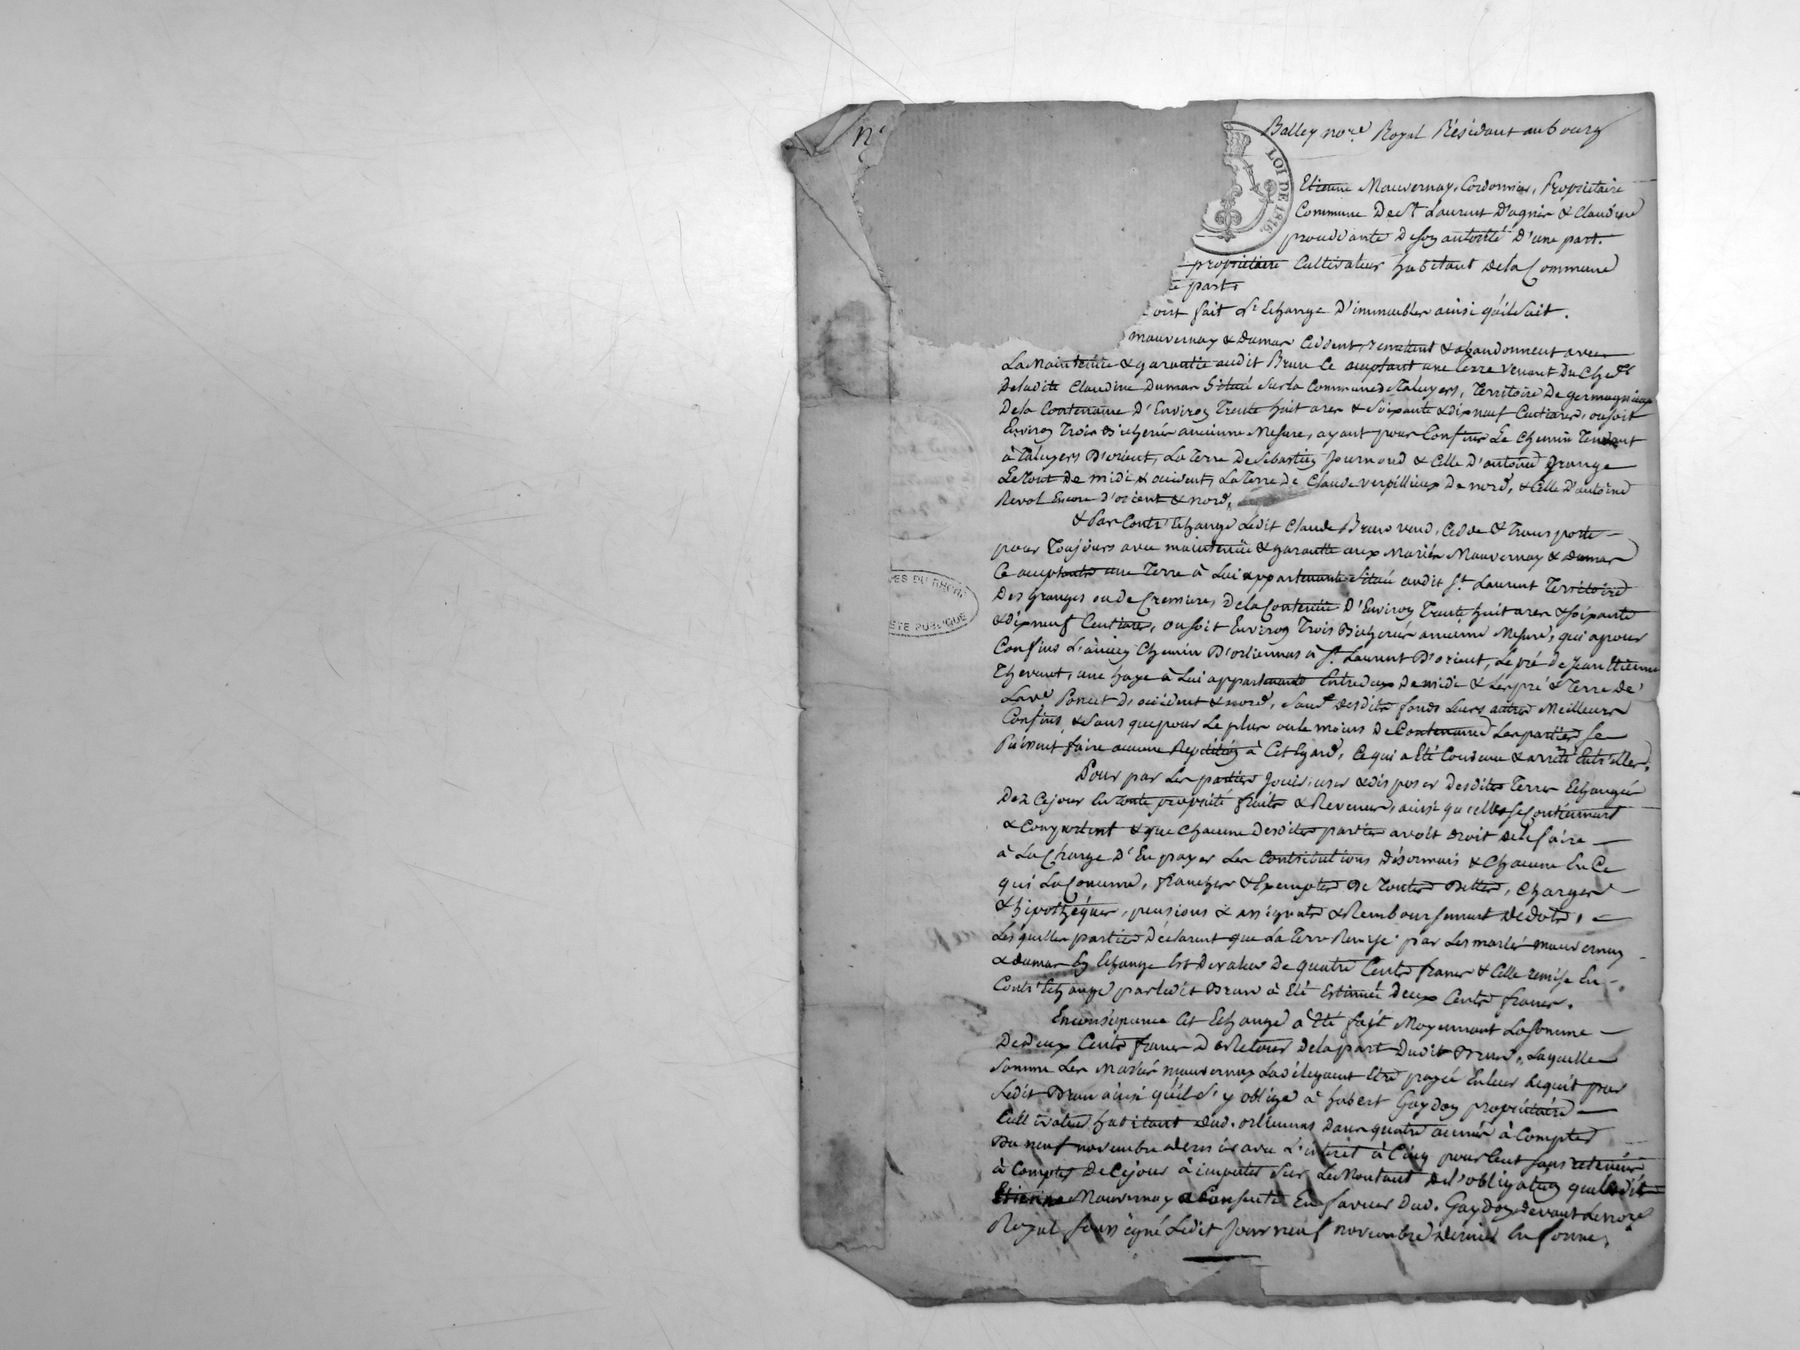 Balley no.re Royal Résidant au bourg
LOI DE 1816
Etienne Mauvernay, Cordonnier, Propriétaire
Commune De St Laurent D'agnir & Claudine
D'une part.
propriétaire Cultivateur habitant dela Commune
part.
ont fait d'Echange D'immeubles ainsi qu'il suit.
Mauvernay & Dumas Cèdent, remettent & abandonnent avec
La Maintenüe & garantie audit Brun Ce acceptant une terre venant Du Chef
De ladite Claudine Dumas Située Sur la Commune de Taluyers, Territoire De
De la Contenance D'Environ Trente huit ares & Soixante & dix neuf Centiares, ou soit
Environ Trois Bicherées ancienne Mesure, ayant pour Confins Le Chemin Tendant
à Taluyers D'orient, La Terre De Sébastien Journoud & Celle D'antoine Grange
Le tout De midi & occident, La Terre De Claude Verpillieux De nord, & Celle D'antoine
Revol Encore D'orient & nord,
& Par Contr'Echange Ledit Claude Brun vend, Cède & Transporte
pour Toujours avec maintenüe & garantie aux Mariés Mauvernay & Dumas
Ce acceptants une Terre à Lui appartenante Située audit St. Laurent Territoire
Des Granges ou de Cremieres De la Contenüe D'Environ Trente huit ares & soixante
& dix neuf Centiares, ou soit Environ Trois Bicherées ancienne Mesure, qui a pour
Confins L'ancien Chemin D'orliennas à St. Laurent D'orient, Le pré de Jean Etienne
Thevenet, une haye à Lui appartenante Entredeux De midi & Les pré & Terre De
La ve Poncet D'occident & nord, Sauf desdits fonds Leurs autres Meilleurs
Confins & Sans que pour Le plus ou le moins De Contenance Les parties Se
Puissent faire aucune Répétition à Cet Egard, Ce qui a Eté Convenu & arrêté Entr'elles.
Pour par Les parties Jouir, user & disposer Desdites Terres Echangées
Dez Ce jour En toute propriété fruits & Revenus, ainsi qu'elles se Contiennent
& Comportent & que Chacune Desdites parties avoit Droit De le faire
à La Charge D'En payer Les Contributions Désormais & Chacune En Ce
qui La Concerne, franches & Exemptes De Toutes Dettes, Charges
& hipothèques, pensions & assignats & Remboursement De dots,
Lesquelles parties Déclarent que La Terre Remise par Les mariés Mauvernay
& Dumas En Echange Est De valeur De quatre Cents francs & Celle remise En
Contr'Echange par ledit Brun a Eté Estimée Deux Cents francs.
En conséquence Cet Echange a Eté fait Moyennant La Somme
De deux Cents francs De Retour De la part Dudit Brun, Laquelle
Somme Les Mariés Mauvernay La délèguent Etre payée En leur acquit par
Ledit Brun ainsi qu'il S'y oblige à hubert Gaydon propriétaire
Cultivateur habitant Dud. orliennas Dans quatre années à Compter
Du neuf novembre dernier avec L'intérêt à Cinq pour Cent sans retenüe
à Compter De Ce jour à imputer Sur Le Montant De l'obligation que Ledit
Etienne Mauvernay a Consentie En faveur Dud. Gaydon devant Le nore
Royal Soussigné Ledit Jour neuf novembre dernier En forme.